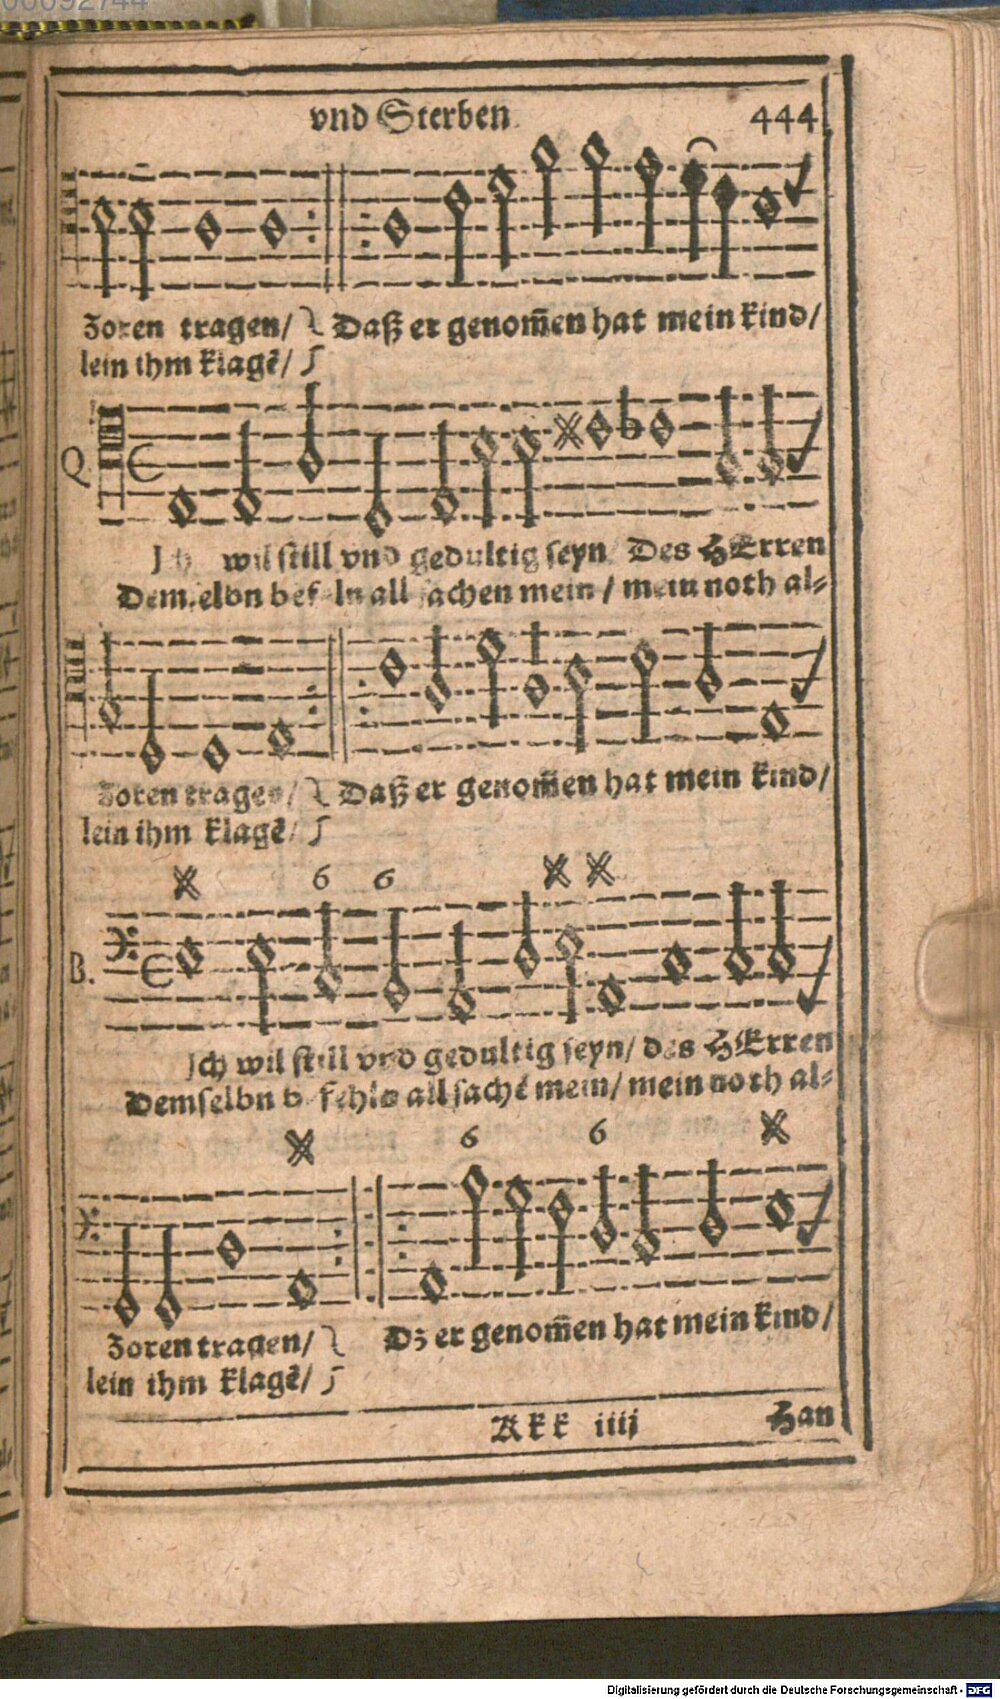 00092744
vnd Sterben 444
Zoren tragen/ Daß er genom̃en hat mein kind/
lein ihm klagẽ/
Q
wil still vnd gedultig seyn Des HErren
all sachen mein / mein noth al-
Zoren tragen/ Daß er genom̃en hat mein kind/
lein ihm klagẽ/
6 6
B.
Ich wil still vnd gedultig seyn/ des HErren
Demselbn all sachẽ mein/ mein noth al-
6 6
Zoren tragen/ Dz er genom̃en hat mein kind/
lein ihm klagẽ/
Kkk iiij Han
Digitalisierung gefördert durch die Deutsche Forschungsgemeinschaft - DFG